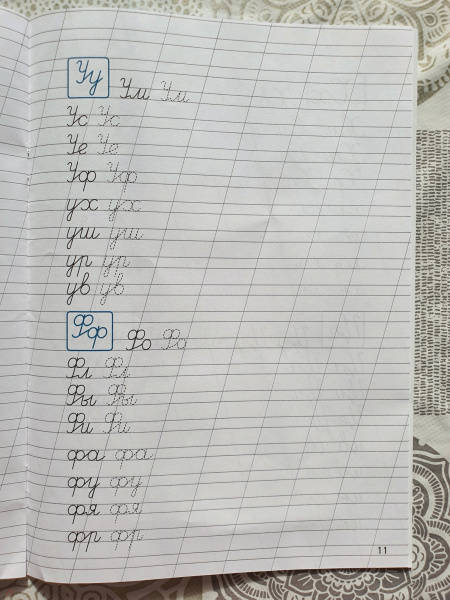 Уу Ум Ум
Ус Ус
Уе Уе
Уф Уф
ух ух
уш уш
ур ур
ув ув
Фф Фо Фо
Фл Фл
Фы Фы
Фи Фи
фа фа
фу фу
фя фя
фр фр
11